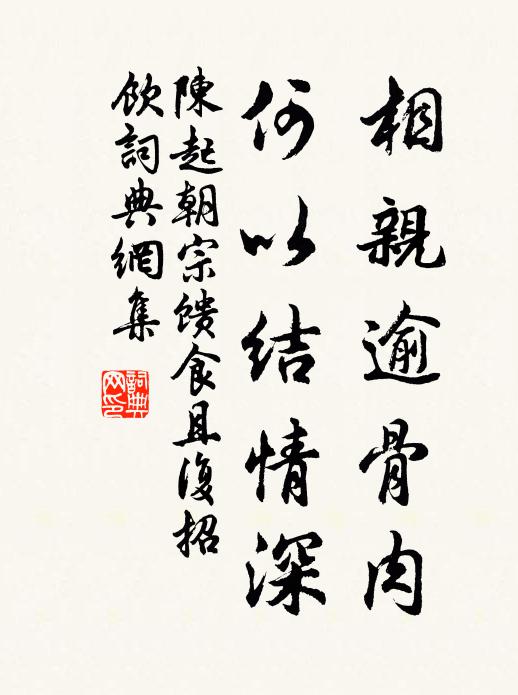 相親逾骨肉
何以結情深
陳起朝宗馈食且復招
飲詞典網集
詞典网印